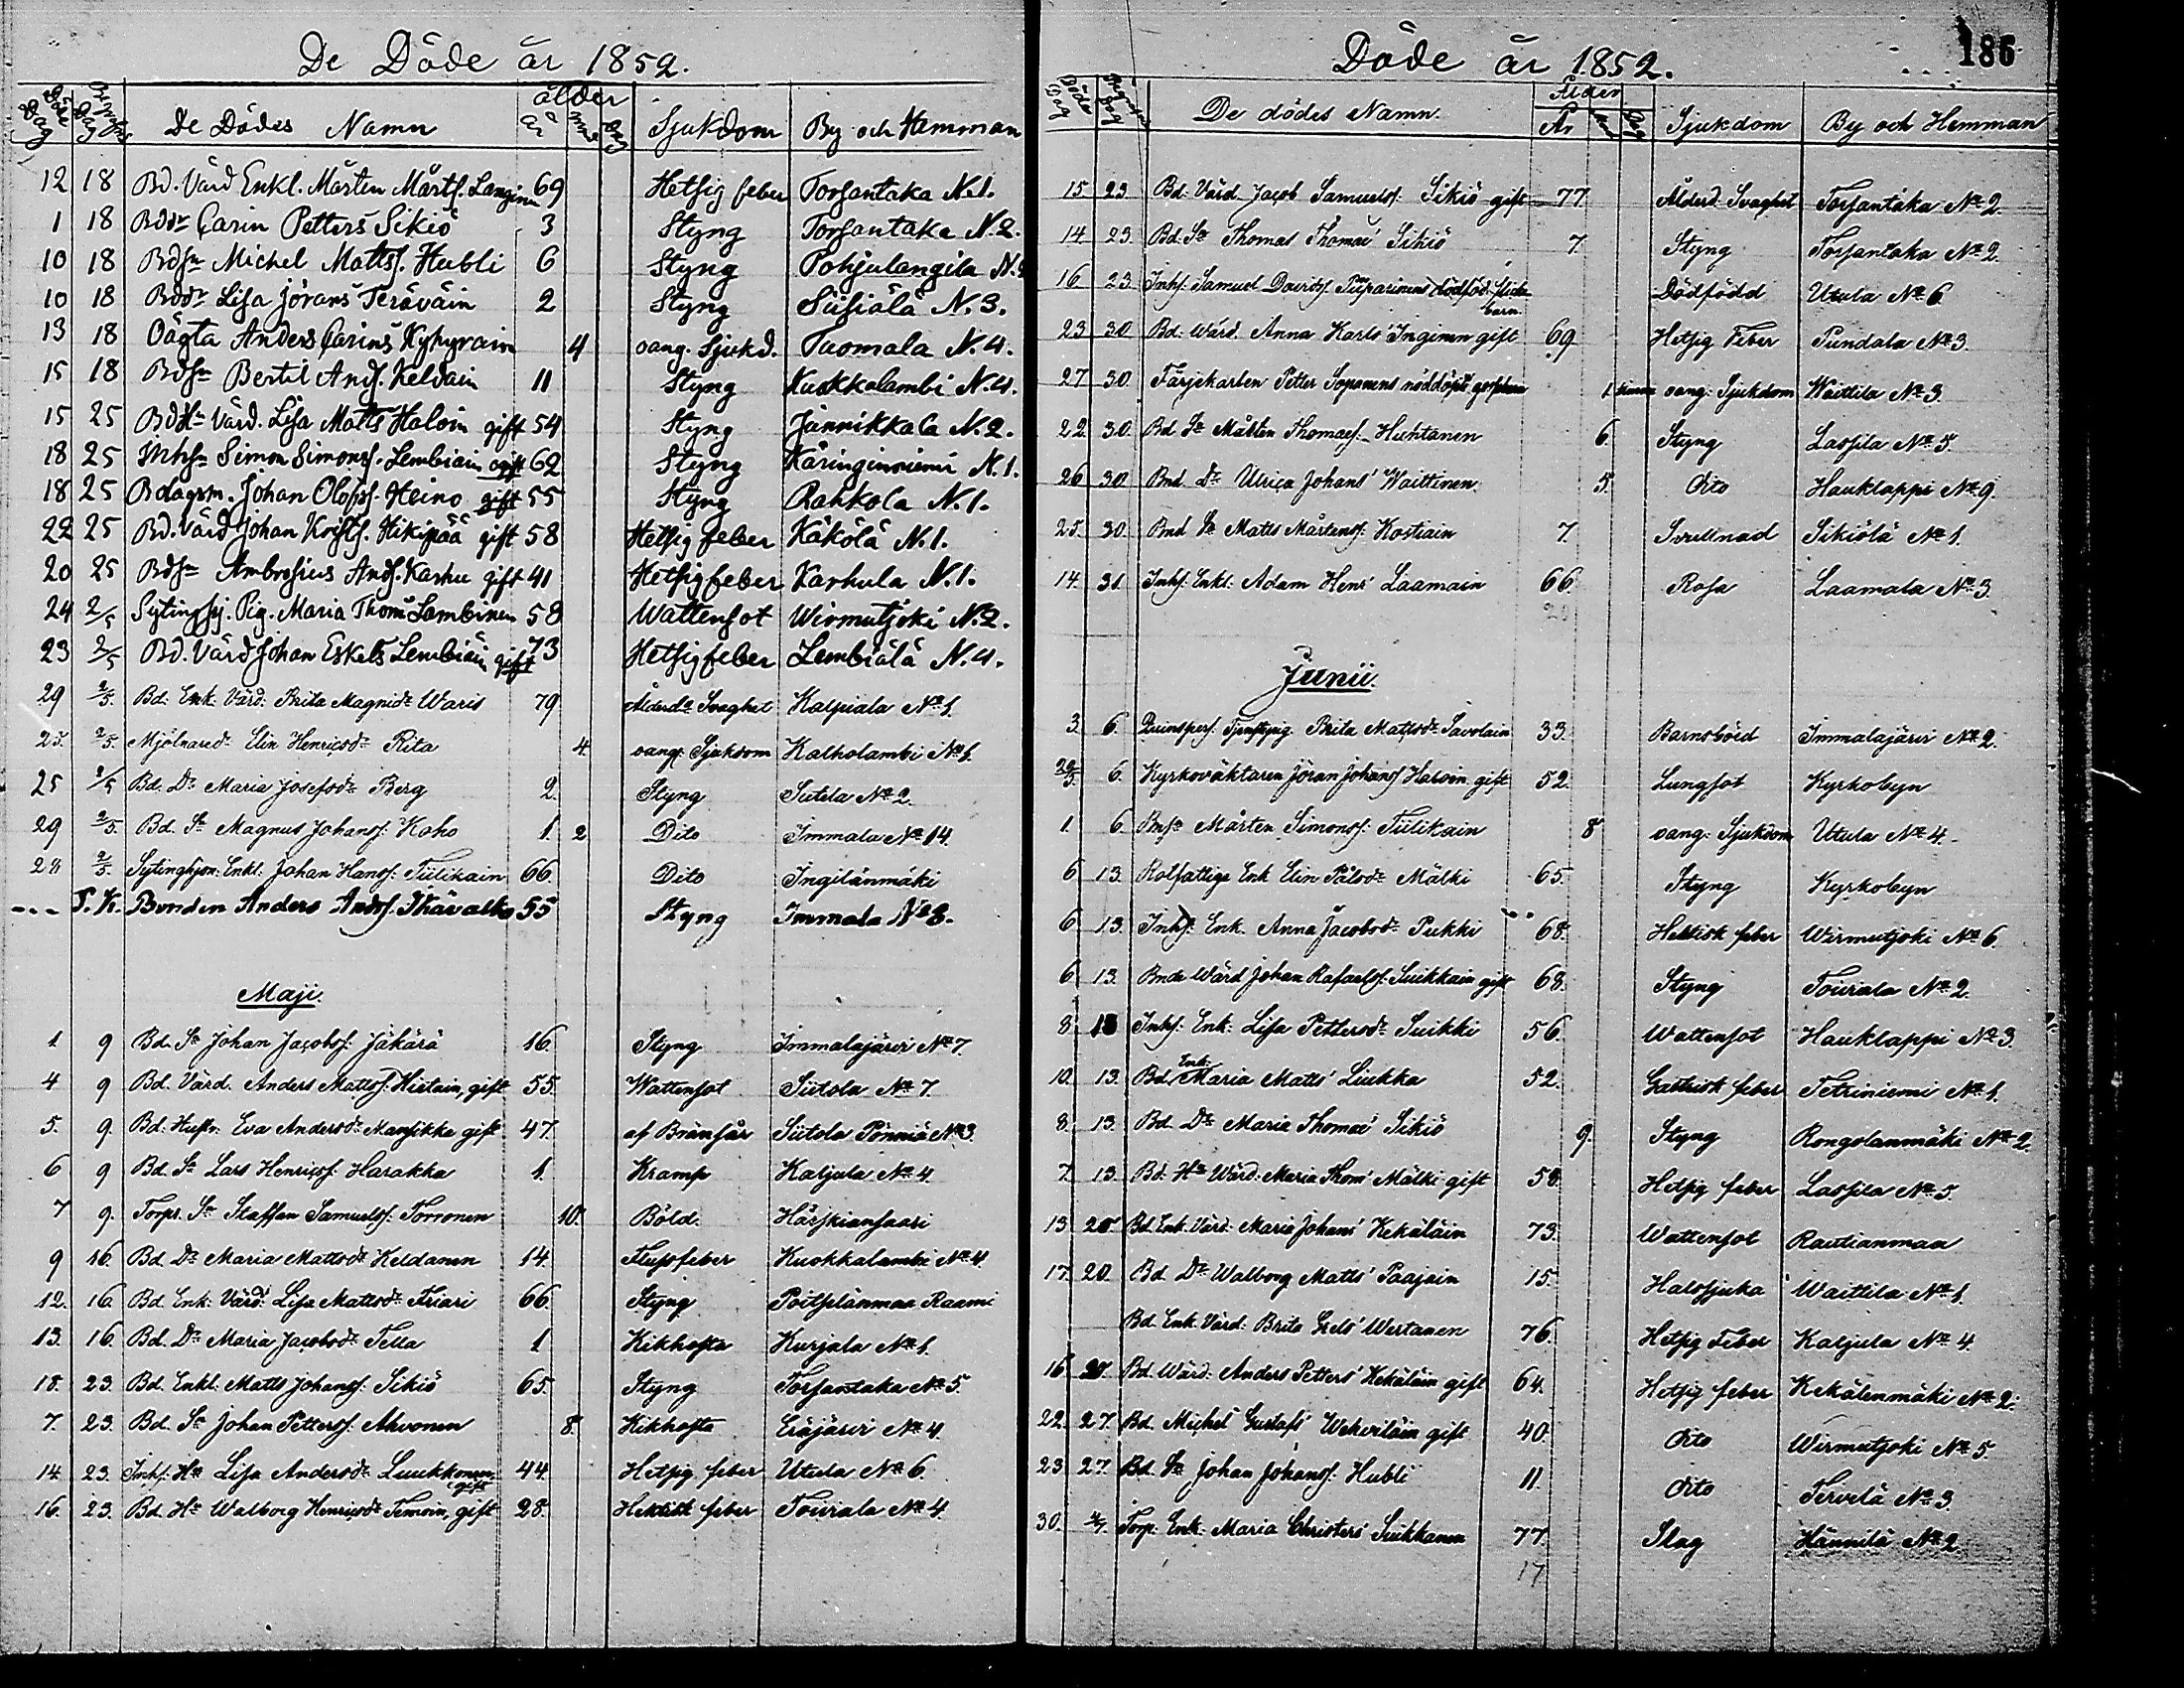 De Döde år 1852.
Döde Dag Begrafn. Dag De Dödes Namn ålder år mnd dag Sjukdom By och Hemman
12 18 Bd. Värd Enkl. Mårten Mårtsf. Langinen 69 Hetsig feber Torsantaka N.1.
1 18 Bddr Carin Petters Sikiö 3 Styng Torsantaka N.2.
10 18 Bdsn Michel Mattsf. Hubli 6 Styng Pohjalangila N.
10 18 Bddr Lisa Jörans Teräväin 2 Styng Siisiälä N.3.
13 18 Oägta Anders Carins Kyhyräin 4 oang. Sjukd. Tuomala N.4.
15 18 Bdsn Bertil Andsf. Keldain 11 Styng Kuokkalambi N.4.
15 25 BdHu Värd. Lisa Matts Haloin gift 54 Styng Jännikkala N.2.
18 25 Inhsn Simon Simonsf. Lembiäin ogift 62 Styng Käringinniemi N.1.
18 25 Bdagsm. Johan Olofsf. Heino gift 55 Styng Rahkola N.1.
22 25 Bd. Värd Johan Kristsf. Hikipää gift 58 Hetsig feber Käkölä N.1.
20 25 Bdsn Ambrosius Andsf. Karhu gift 41 Hetsig feber Karhula N.1.
24 2/5 Sytingshj. Pig. Maria Thoms Lambinen 58 Wattensot Wirmutjoki N.2.
23 2/5 Bd. Värd Johan Eskels Lembiäin gift 73 Hetsig feber Lembiälä N.4.
29 2/5. Bd. Enk. Värd. Brita Magnidr Waris 79 Ålderds Svaghet Kalpiala No 1.
25. 2/5. Mjölnaredr Elin Henricsdr Rita 4. oang. Sjukdom Kalholambi No 1.
25 2/5 Bd. Dr Maria Josefsdr Berg 2. Styng Sutela No 2.
29 2/5. Bd. Sn Magnus Johansf. Koho 1. 2 Dito Immala No 14.
28 2/5. Sytinghjon. Enkl. Johan Hansf. Tiilikain 66. Dito Ingilänmäki
--- T.K. Bonden Anders Andsf. Ikävalko 55 Styng Immala No 8.
Maji.
1 9 Bd. Sn Johan Jacobsf. Jäkärä 16. Styng Immalajärvi No 7.
4 9 Bd. Värd. Anders Mattsf. Hietain, gift 55. Wattensot Siitola No 7.
5. 9. Bd. Hustr. Eva Andersdr Mansikka gift 47. af Brånsår Siitola Pönniä No 3.
6 9 Bd. Sn Lars Henricsf. Harakka 1. Kramp Kaljula No 4.
7 9. Torpr. Sn Staffan Samuelsf. Torronen 10. Böld. Härskiansaari
9 16. Bd. Dr Maria Mattsdr Keldanen 14. Flussfeber Kuokkalambi No 4.
12. 16. Bd. Enk. Värd. Lisa Mattsdr Friari 66. Styng Poitsilänmaa Raami
13. 16 Bd. Dr Maria Jacobsdr Tella 1 Kikhosta Kurjala No 1.
18. 23. Bd. Enkl. Matts Johansf. Sikiö 65. Styng Torsantaka No 5.
7. 23 Bd. Sn Johan Pettersf. Ahvonen 8. Kikhosta Eräjärvi No 4.
14 23. Inhs. Hu Lisa Andersdr Luukkonen gift 44. Hetsig feber Utula No 6.
16. 23. Bd. Hu Walborg Henricsdr Temoin, gift 28. Hektisk feber Touvala No 4.
Döde år 1852. 186
Döde Dag Begrafn. Dag De dödes Namn. Ålder År Mnd Dag Sjukdom By och Hemman
15. 23. Bd. Värd. Jacob Samuelsf. Sikiö gift 77 Ålderd. Svaghet Torsantaka No 2.
14 23. Bd. Sn Thomas Thomae' Sikiö 7. Styng Torsantaka No 2.
16 23. Inhs. Samuel Davidsf. Puparinens dödföd. flicke barn. Dödfödd Utula No 6.
23 30. Bd. Wärd. Anna Karls' Inginen gift 69. Hetsig Feber Pundala No 3.
27 30. Färjekarlen Petter Soponens nöddöpte gossebarn 1 timme oang. Sjukdom Waittila No 3.
22. 30. Bd Sn Mårten Thomaesf. Huhtanen 6. Styng Lassila No 5.
26 30. Bnd. Dr Ulrica Johans' Waittinen. 5. Dito Hauklappi No 9.
25. 30. Bnd Sn Matts Mårtensf. Kostiain 7 Svullnad Sikiölä No 1.
14. 31. Inhs. Enkl. Adam Henr' Laamain 66. Rosa Laamala No 3.
Junii.
3. 6. Tjenstpig Brita Mattsdr Savolain 33. Barnsbörd Immalajärvi No 2.
29/5. 6. Kyrkoväktaren Jöran Johansf Haloin gift 52. Lungsot Kyrkobyn
1. 6. Bnsn Mårten Simonsf. Tiilikain 8 oang. Sjukdom Utula No 4.
6 13. Rotfattiga Enk Elin Pålsdr Mälki 65. Styng Kyrkobyn
6. 13. Inhs. Enk. Anna Jacobsdr Pukki 68. Hektisk feber Wirmutjoki No 6.
6 13. Bnda Wärd Johan Rafaelsf. Suikkain gift 68. Styng Touvala No 2.
8. 13 Inhs. Enk. Lisa Pettersdr Suikki 56. Wattensot Hauklappi No 3.
10. 13. Bd. Enk. Maria Matts' Liukka 52. Gastrisk feber Tetriniemi No 1.
8. 13. Bd. Dr Maria Thomae' Sikiö 9. Styng Rongolanmäki No 2.
7. 13. Bd. Hu Wärd. Maria Thom' Mälki gift 58. Hetsig feber Lassila No 5.
13 20 Bd. Enk. Värd. Maria Johans' Kekäläin 73. Wattensot Rautianmaa
17. 20. Bd. Dr Walborg Matts' Paajain 15. Halssjuka Waittila No 1.
Bd. Enk. Värd. Brita Wertanen 76. Hetsig Feber Kaljula No 4.
16 20. Bd. Wärd. Anders Petters' Kekäläin gift 64. Hetsig feber Kekälenmäki No 2.
22. 27. Bd. Michel Gustafs' Wehviläin gift 40. Dito Wirmutjoki No 5.
23 27. Bd. Sn Johan Johansf. Hubli 11. Dito Tervilä No 3.
30. 4/7. Torp. Enk. Maria Christers' Suikkanen 77. Slag Hännilä No 2.
17